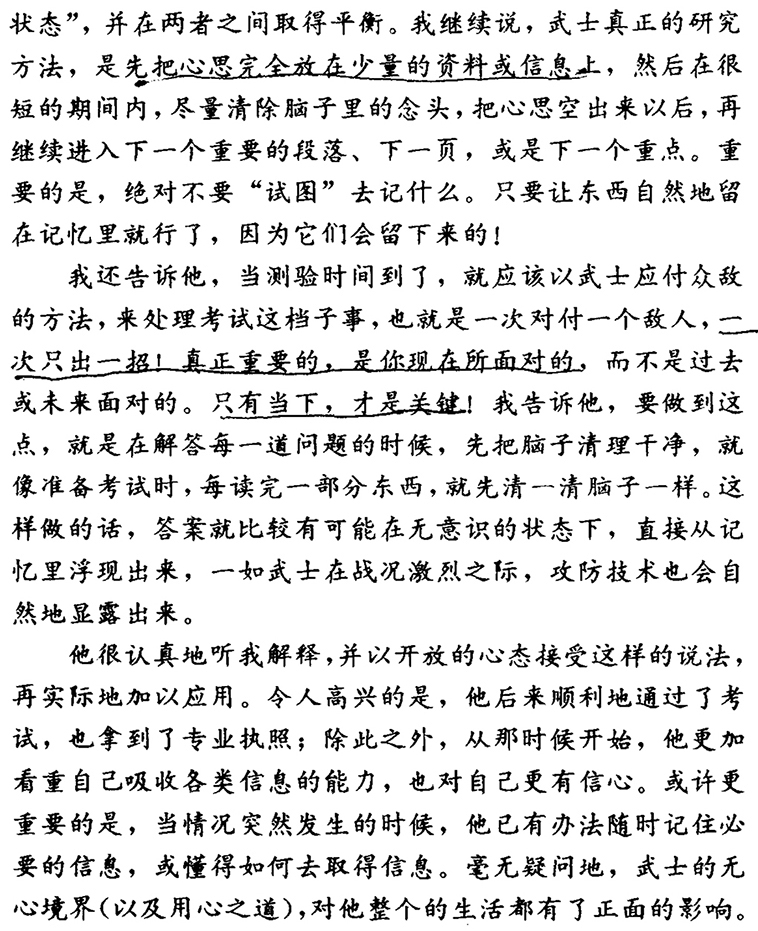 状态”，并在两者之间取得平衡。我继续说，武士真正的研究
方法，是先把心思完全放在少量的资料或信息上，然后在很
短的期间内，尽量清除脑子里的念头，把心思空出来以后，再
继续进入下一个重要的段落、下一页，或是下一个重点。重
要的是，绝对不要“试图”去记什么。只要让东西自然地留
在记忆里就行了，因为它们会留下来的！
我还告诉他，当测验时间到了，就应该以武士应付众敌
的方法，来处理考试这档子事，也就是一次对付一个敌人，一
次只出一招！真正重要的，是你现在所面对的，而不是过去
或未来面对的。只有当下，才是关键！我告诉他，要做到这
点，就是在解答每一道问题的时候，先把脑子清理干净，就
像准备考试时，每读完一部分东西，就先清一清脑子一样。这
样做的话，答案就比较有可能在无意识的状态下，直接从记
忆里浮现出来，一如武士在战况激烈之际，攻防技术也会自
然地显露出来。
他很认真地听我解释，并以开放的心态接受这样的说法，
再实际地加以应用。令人高兴的是，他后来顺利地通过了考
试，也拿到了专业执照；除此之外，从那时候开始，他更加
看重自己吸收各类信息的能力，也对自己更有信心。或许更
重要的是，当情况突然发生的时候，他已有办法随时记住必
要的信息，或懂得如何去取得信息。毫无疑问地，武士的无
心境界（以及用心之道），对他整个的生活都有了正面的影响。